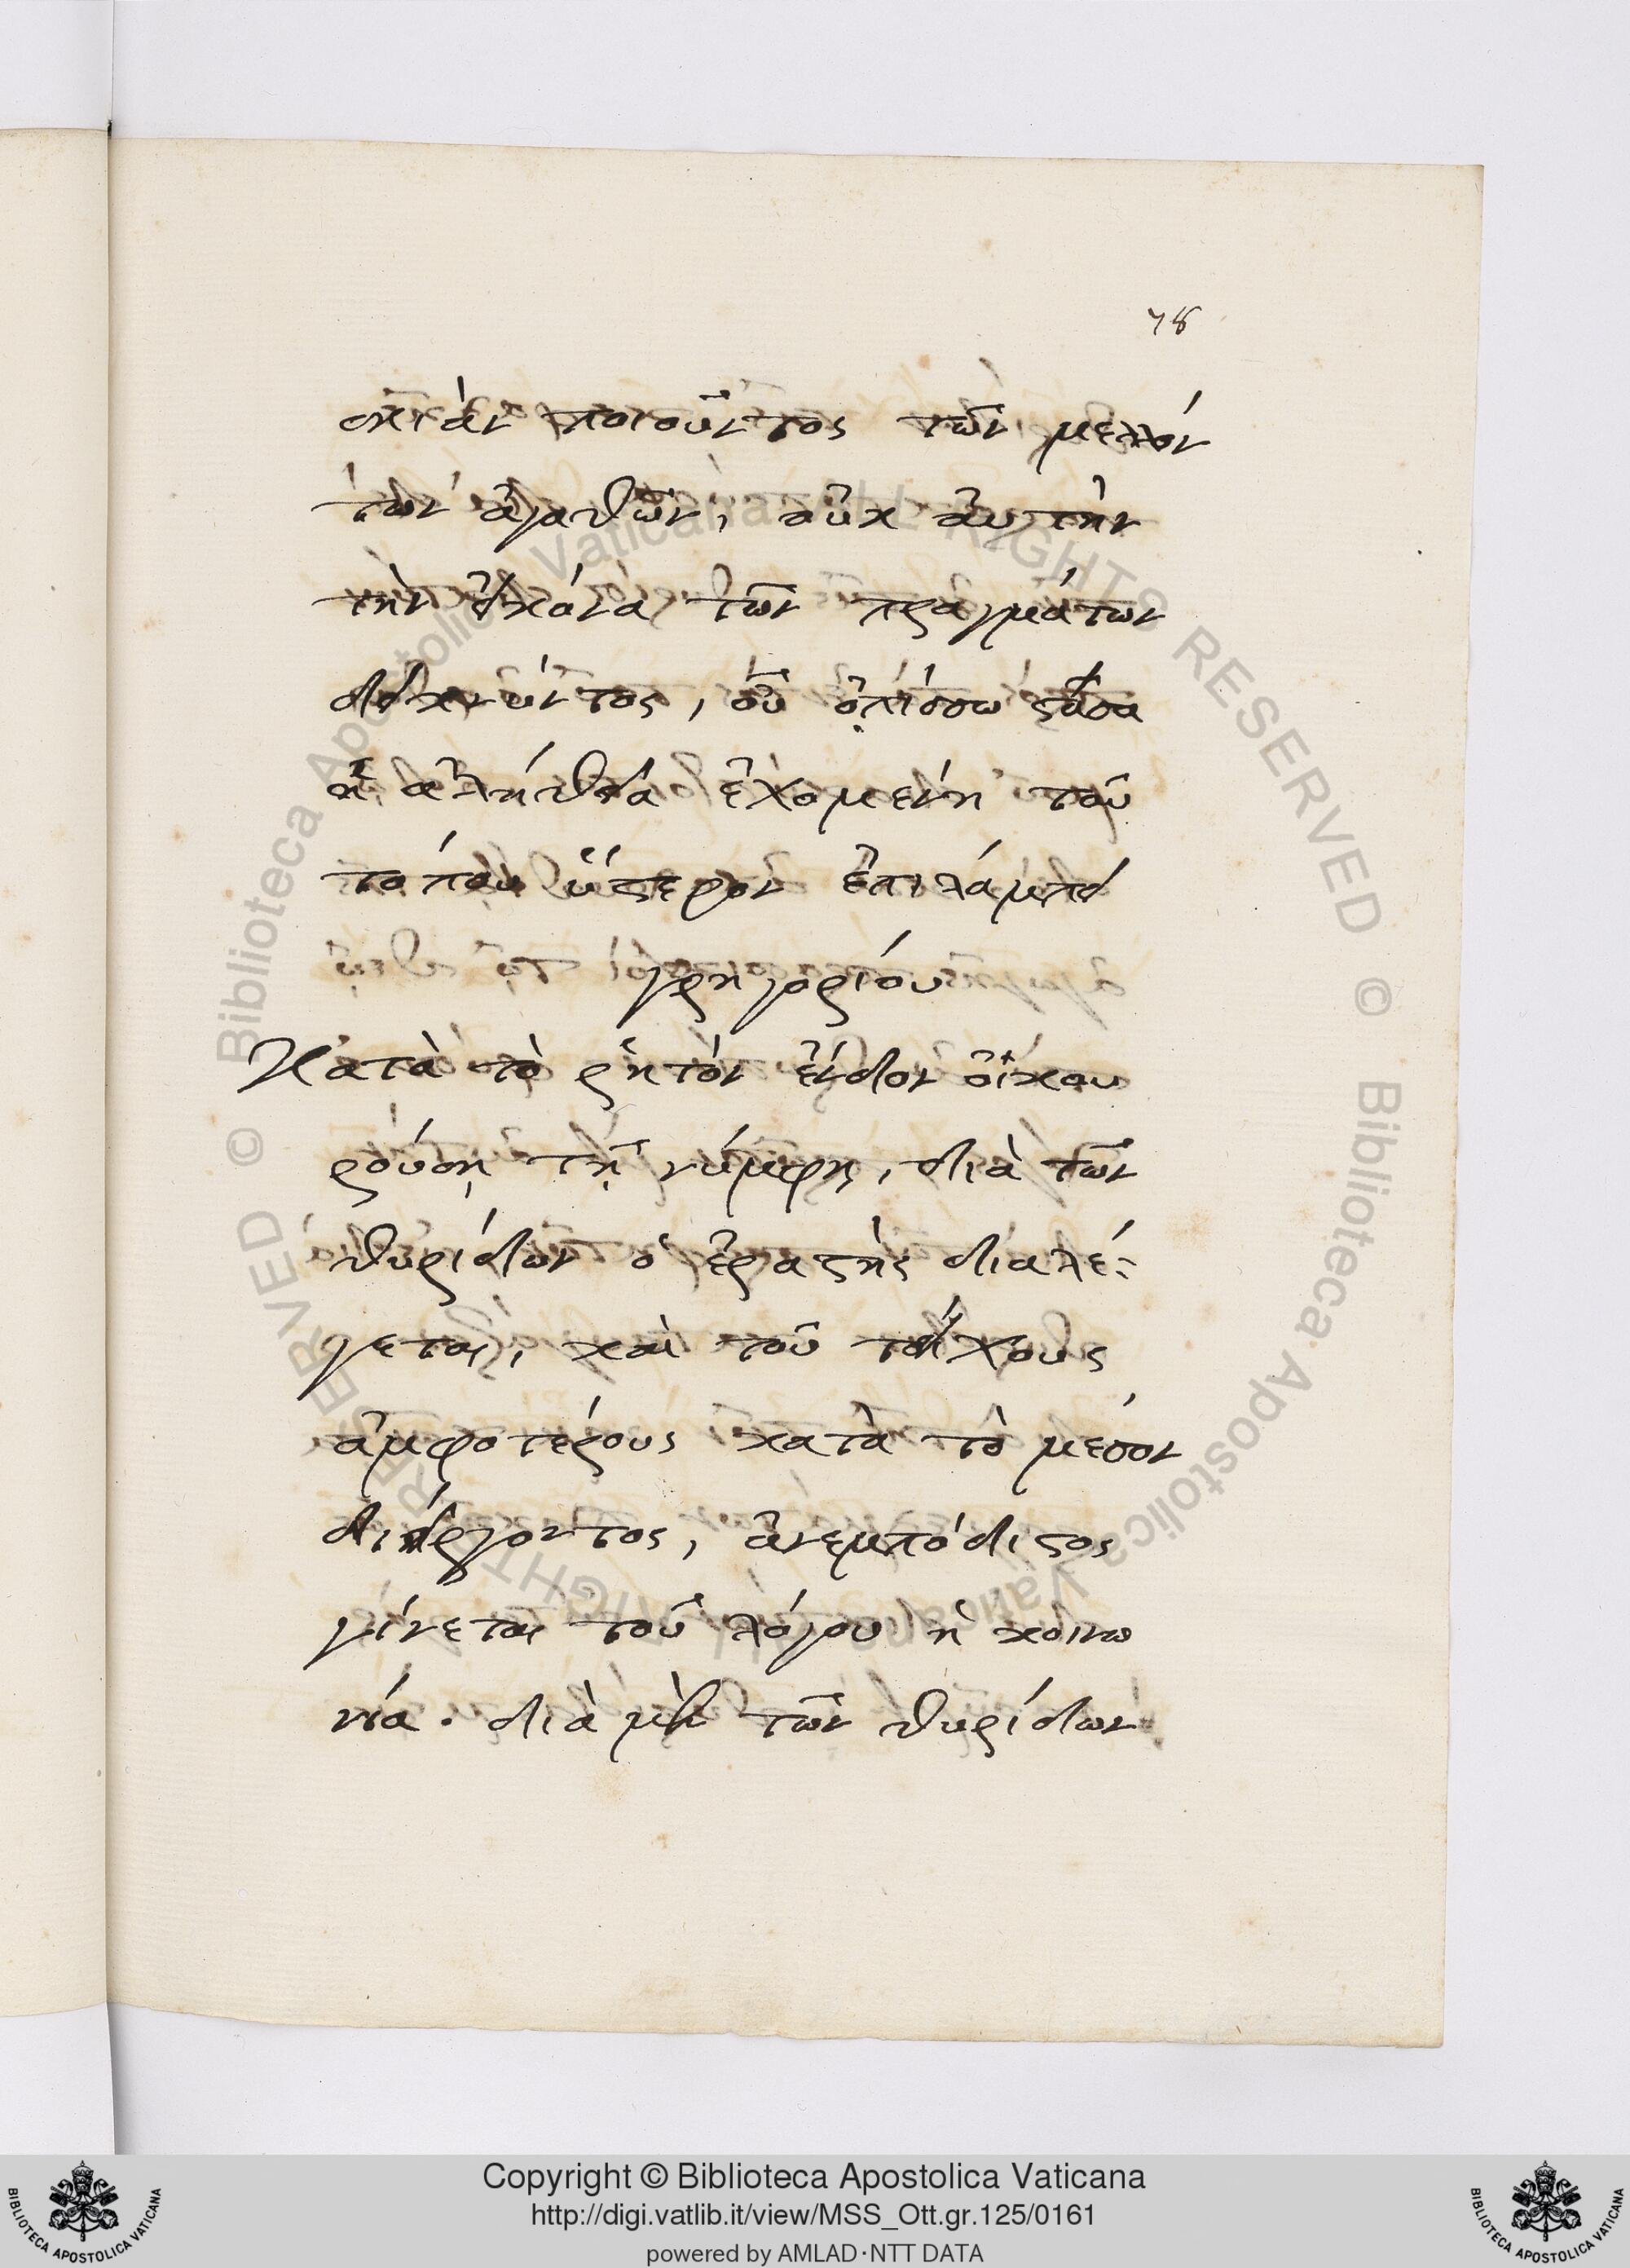 78
σκιὰν ποιοῦντος τῶν μελλόν
των ἀγαθῶν, οὐκ αὐτὴν
τὴν εἰκόνα τῶν πραγμάτων
δεικνῦντος, οὗ ὀπίσσω στᾶσα
ἡ ἀλήθεια ἐχομένη τοῦ
τόπου ὕστερον ἐπιλάμπει
γρηγορίου
Κατὰ τὸ ῥητὸν ἔνδον οἰκου
ρούσῃ τῇ νύμφῃ, διὰ τῶν
θυρίδων ὁ ἐραστὴς διαλέ-
γεται, καὶ τοῦ τείχους
ἀμφοτέρους κατὰ τὸ μέσον
διείργοντος, ἀνεμπόδιστος
γίνεται τοῦ λόγου ἡ κοινω
νία. διὰ μὲν τῶν θυρίδων
© Biblioteca Apostolica Vaticana ALL RIGHTS RESERVED
© Biblioteca Apostolica Vaticana ALL RIGHTS RESERVED
BIBLIOTECA APOSTOLICA VATICANA
Copyright © Biblioteca Apostolica Vaticana
http://digi.vatlib.it/view/MSS_Ott.gr.125/0161
powered by AMLAD·NTT DATA
BIBLIOTECA APOSTOLICA VATICANA